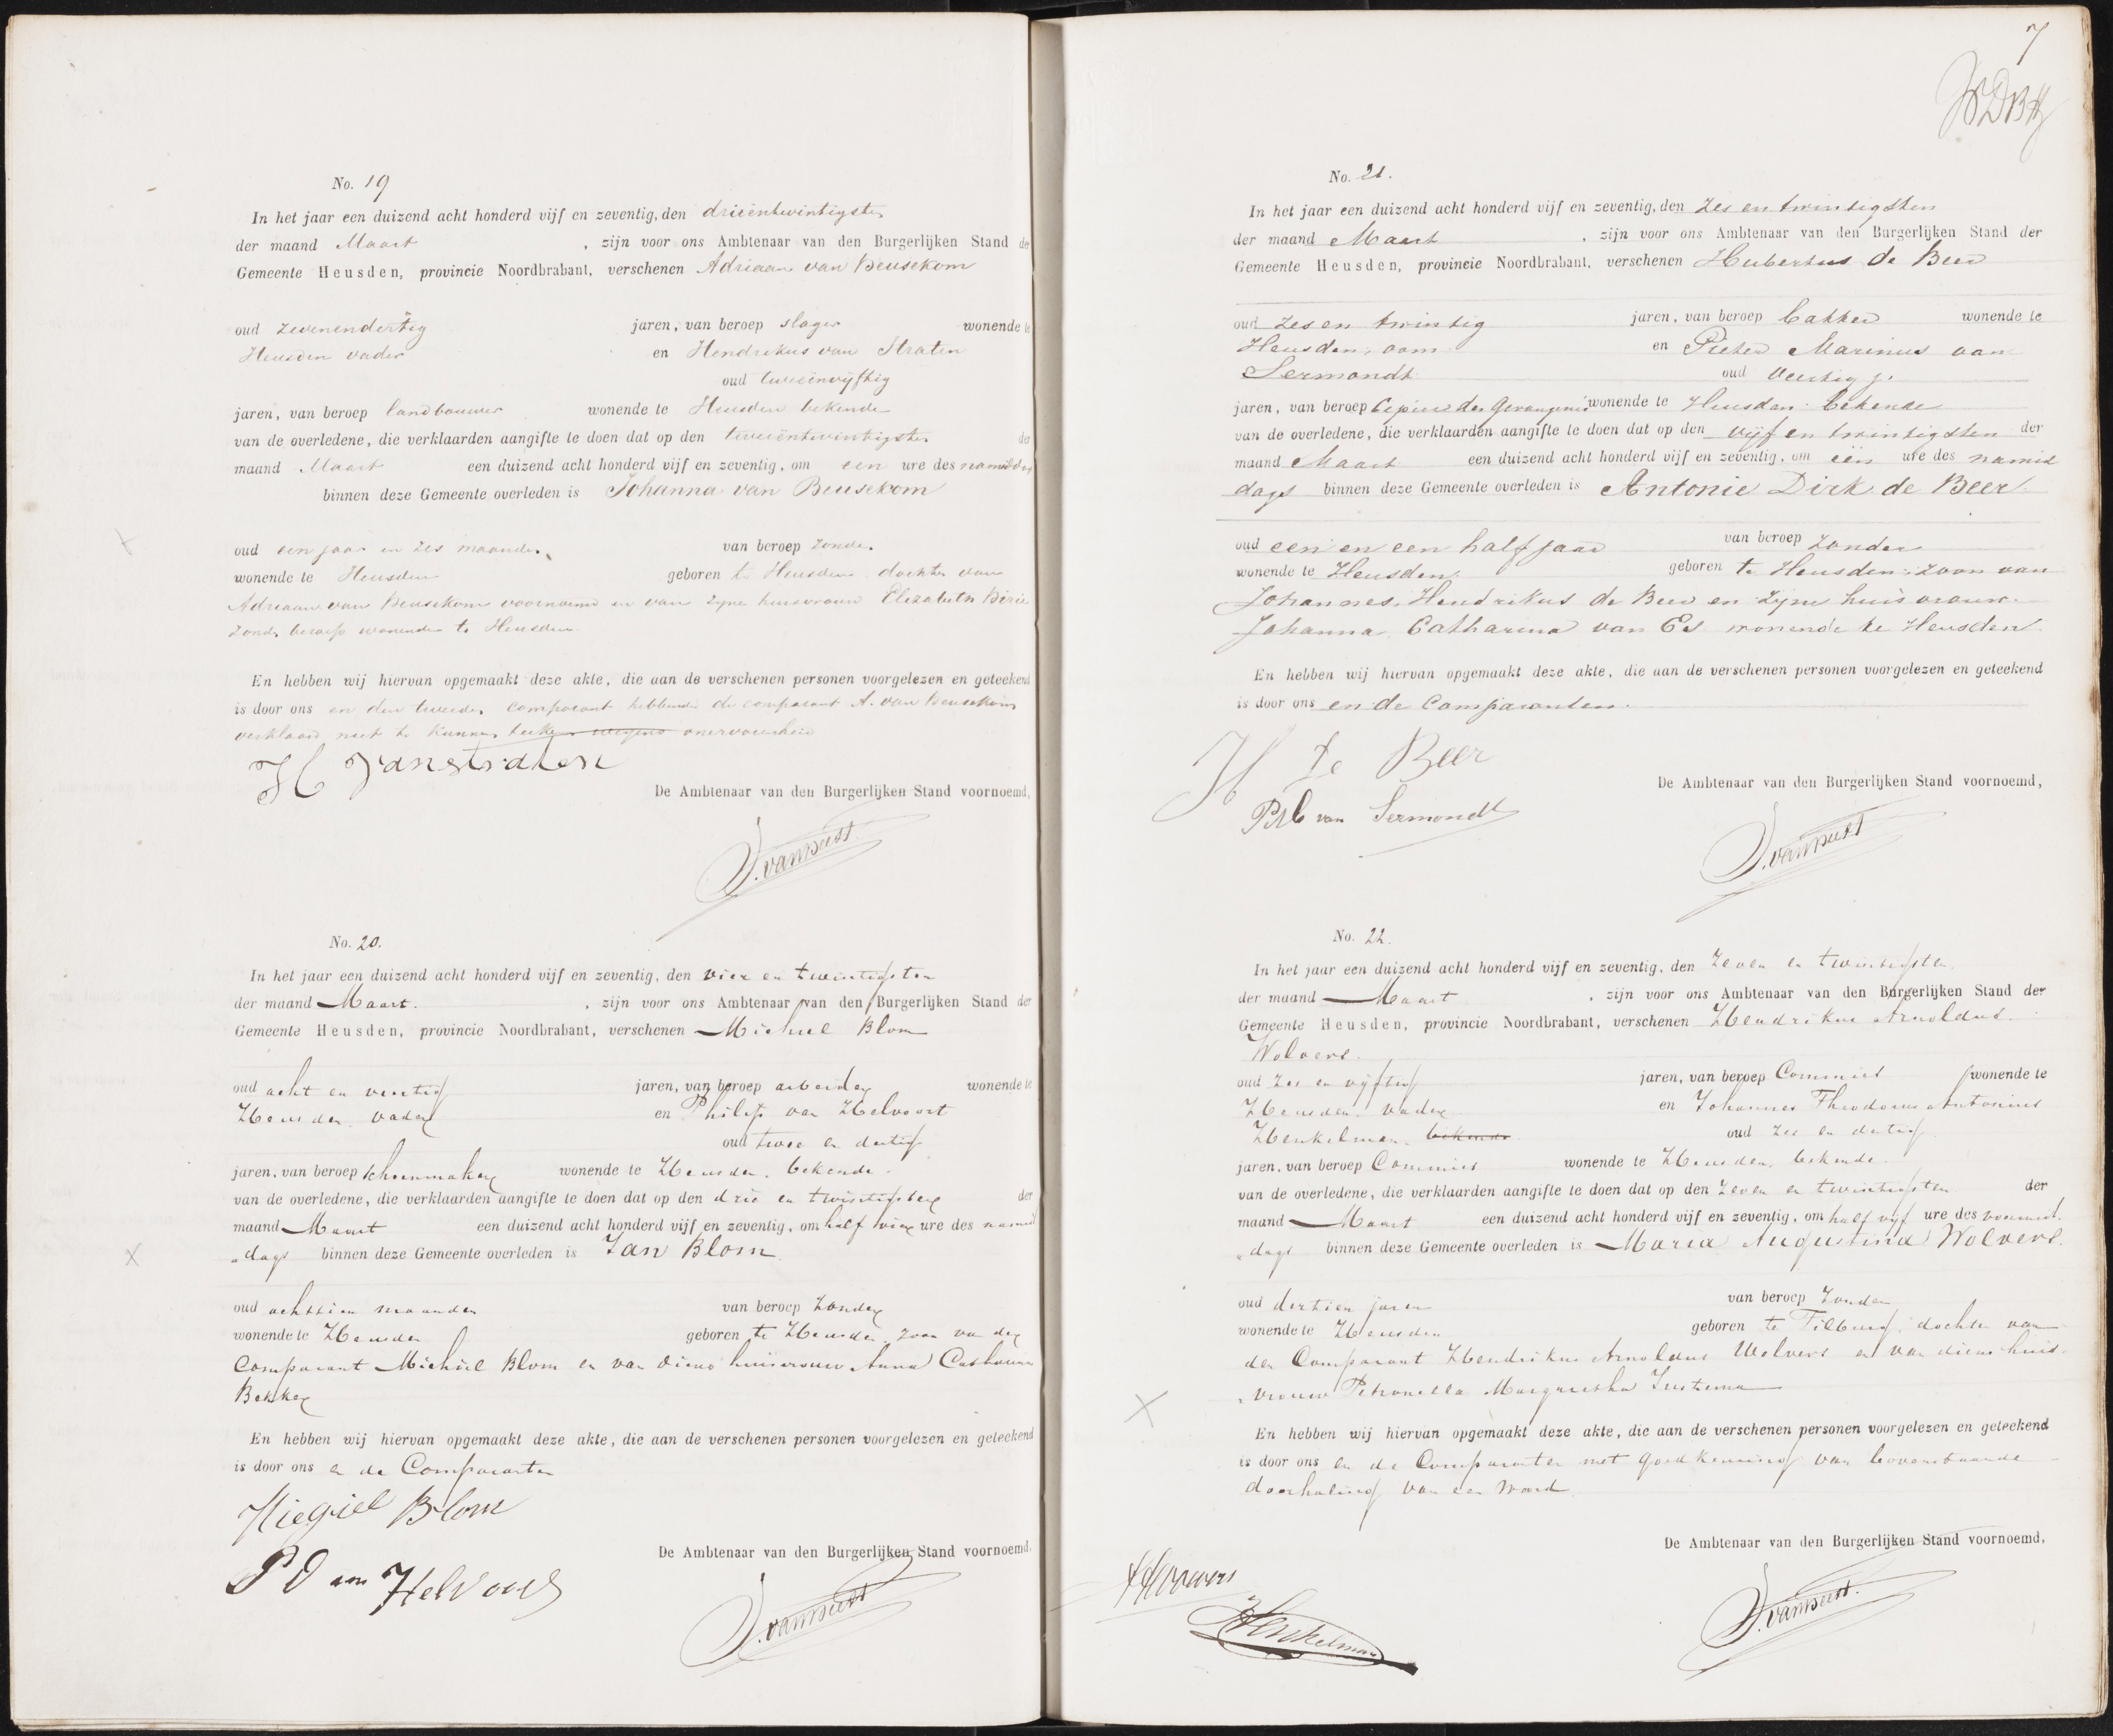 No. 19
In het jaar een duizend acht honderd vijf en zeventig, den drieëntwintigsten
der maand Maart , zijn voor ons Ambtenaar van den Burgerlijken Stand de
Gemeente Heusden, provincie Noordbrabant, verschenen Adriaan van Beusekom
oud zevenendertig jaren, van beroep slager wonende te
Heusden vader en Hendrikus van Straten
oud tweeënvijftig
jaren, van beroep landbouwer wonende te Heusden bekende
van de overledene, die verklaarden aangifte te doen dat op den tweeëntwintigsten der
maand Maart een duizend acht honderd vijf en zeventig, om een ure des namiddag
binnen deze Gemeente overleden is Johanna van Beusekom
oud een jaar en zes maanden van beroep zonder
wonende te Heusden geboren te Heusden dochter van
Adriaan van Beusekom voornoemd en van zyne huisvrouw Elizabeth
zonder beroep wonende te Heusden
En hebben wij hiervan opgemaakt deze akte, die aan de verschenen personen voorgelezen en geteekend
is door ons en den tweeden comparant hebbende de comparant A. van Beusekom
verklaard niet te kunnen wegens onervarenheid
H van straten
De Ambtenaar van den Burgerlijken Stand voornoemd,
No. 20.
In het jaar een duizend acht honderd vijf en zeventig, den vier en twintigsten
der maand Maart. , zijn voor ons Ambtenaar van den Burgerlijken Stand der
Gemeente Heusden, provincie Noordbrabant, verschenen Michiel Blom
oud acht en veertig jaren, van beroep arbeider wonende te
Heusden vader en Philip van Helvoort
oud twee en dertig
jaren, van beroep schoenmaker wonende te Heusden. bekende.
van de overledene, die verklaarden aangifte te doen dat op den drie en twintigsten der
maand Maart een duizend acht honderd vijf en zeventig, om half vier ure des namid
dags binnen deze Gemeente overleden is Jan Blom
oud achttien maanden van beroep zonder
wonende te Heusden geboren te Heusden zoon van den
Comparant Michiel Blom en van diens huisvrouw Anna Catharina
Bekker
En hebben wij hiervan opgemaakt deze akte, die aan de verschenen personen voorgelezen en geteekend
is door ons en de Comparanten
Miegiel Blom
P van Helvoort
De Ambtenaar van den Burgerlijken Stand voornoemd.
7
No. 21.
In het jaar een duizend acht honderd vijf en zeventig, den zes en twintigsten
der maand Maart , zijn voor ons Ambtenaar van den Burgerlijken Stand der
Gemeente Heusden, provincie Noordbrabant, verschenen Hubertus de Beer
oud zes en twintig jaren, van beroep bakker wonende te
Heusden, oom en Pieter Marinus van
Sermondt oud veertig j.
jaren, van beroep Cipier der Gevangenis wonende te Heusden. bekende
van de overledene, die verklaarden aangifte te doen dat op den vijf en twintigsten der
maand Maart een duizend acht honderd vijf en zeventig, om een ure des namid
dags binnen deze Gemeente overleden is Antonie Dirk de Beer
oud een en een half jaar van beroep zonder
wonende te Heusden. geboren te Heusden. zoon van
Johannes Hendrikus de Beer en zijne huisvrouw
Johanna Catharina van Es wonende te Heusden.
En hebben wij hiervan opgemaakt deze akte, die aan de verschenen personen voorgelezen en geteekend
is door ons en de Comparanten.
H de Beer
van Sermondt
De Ambtenaar van den Burgerlijken Stand voornoemd,
No. 22.
In het jaar een duizend acht honderd vijf en zeventig, den zeven en twintigsten
der maand Maart , zijn voor ons Ambtenaar van den Burgerlijken Stand der
Gemeente Heusden, provincie Noordbrabant, verschenen Hendrikus Arnoldus
Wolvers.
oud zes en vijftig jaren, van beroep Commies wonende te
Heusden. vader en Johannes Theodorus Antonius
Henkelman. bekende oud zes en dertig
jaren, van beroep Commies wonende te Heusden, bekende
van de overledene, die verklaarden aangifte te doen dat op den zeven en twintigsten der
maand Maart een duizend acht honderd vijf en zeventig, om half vijf ure des voormid.
dags binnen deze Gemeente overleden is Maria Augustina Wolvers.
oud dertien jaren van beroep zonder
wonende te Heusden geboren te Tilburg, dochter van
den Comparant Hendrikus Arnoldus Wolvers en van diens huis
vrouw Petronella Margaretha
En hebben wij hiervan opgemaakt deze akte, die aan de verschenen personen voorgelezen en geteekend
is door ons en de Comparanten met goedkeuring van bovenstaande
doorhaling van een woord
De Ambtenaar van den Burgerlijken Stand voornoemd,
Henkelman